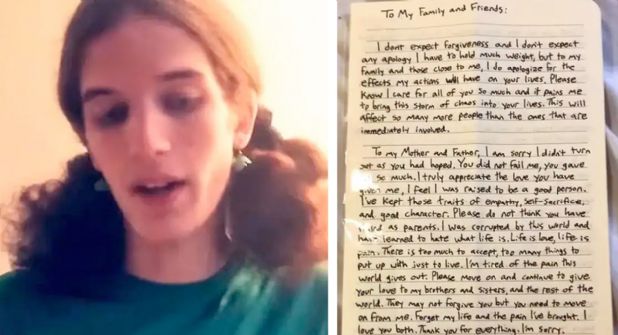 To My Family and Friends:
I dont expect forgiveness and I don't expect
any apology I have to hold much weight, but to my
family and those close to me, I do apologize for the
effects my actions will have on your lives. Please
Know I care for all of you so much and it pains me
to bring this storm of chaos into your lives. This will
affect so many more people than the ones that are
immediately involved.
To my Mother and Father, I am sorry I didn't turn
out as you had hoped. You did not fail me, you gave
so much. I truly appreciate the love you have
given me, I feel I was raised to be a good person.
I've kept those traits of empathy, self-sacrifice,
and good character. Please do not think you have
as parents. I was corrupted by this world and
have learned to hate what life is. Life is love, life is
pain. There is too much to accept, too many things to
put up with just to live. I'm tired of the pain this
world gives out. Please move on and continue to give
your love to my brothers and sisters, and the rest of the
world. They may not forgive you but you need to move
on from me. Forget my life and the pain I've brought. I
love you both. Thank you for everything. I'm sorry.